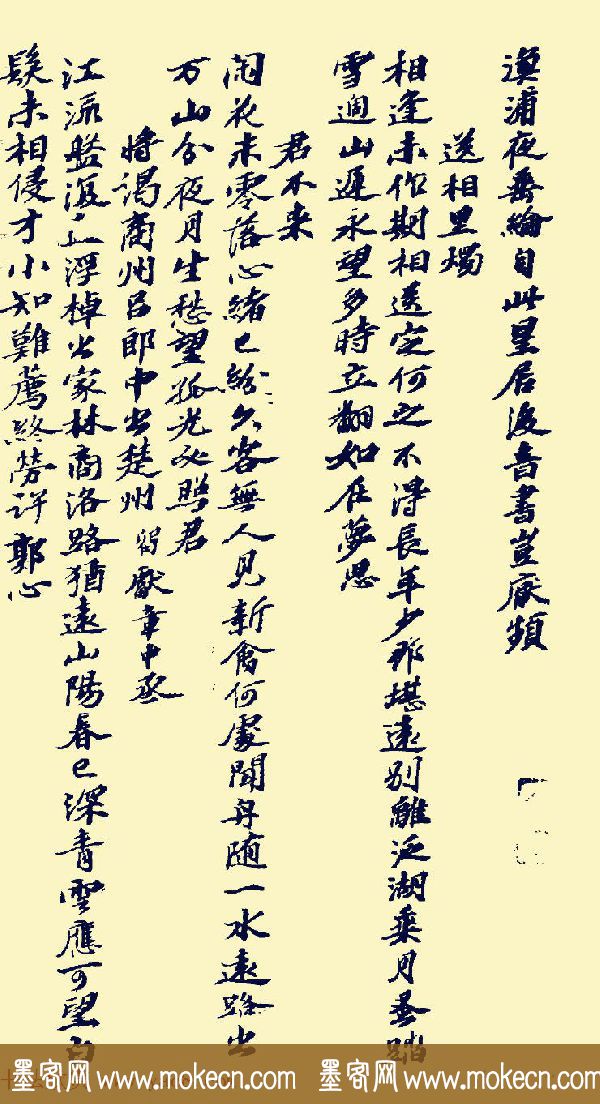 浦夜垂綸自此星居後音書豈厭頻
送相里燭
相逢未作期相送定何之不得長年少那堪遠別離泛湖乘月蚤踏
雪過山遲永望多時立翻如在夢思
君不来
閑花未零落心緒已紛〻久客無人見新禽何處聞舟随一水遠路出
万山分夜月生愁望孤光必照君
将謁商州吕郎中出楚州留獻章中丞
江流盤浮棹出家林商洛路猶遠山陽春已深青雲應可望白
髮未相侵才小知難薦終勞許郭心
墨客网 www.mokecn.com 墨客网 www.mokecn.com